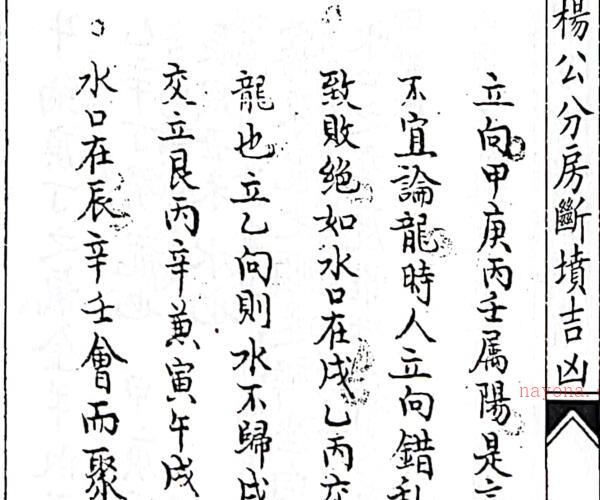 楊公分房斷墳吉凶
立向甲庚丙壬属陽是
不宜論龍時人立向錯
致敗絕如水口在戌乙丙交
龍也立乙向則水不歸戌
交立艮丙辛兼寅午戌
水口在辰辛壬會而聚
nayona.